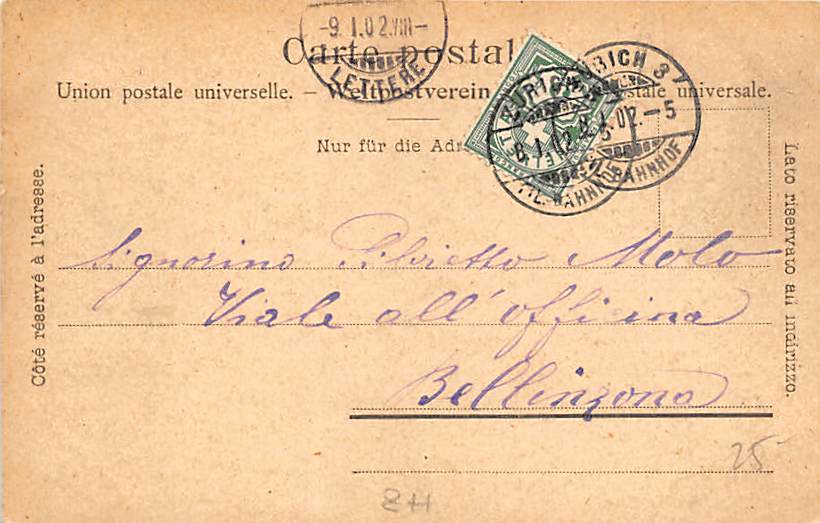 -9.I.02.VIII-
LETTERE
Carte postal
Union postale universelle. – Weltpostverein postale universale.
ZÜRICH
8.I.02.
FIL. BAHNHOF
ZÜRICH 3
8.I.02.-5
FIL. BAHNHOF
HELVET
Nur für die Adr
Côté réservé à l'adresse.
Lato riservato all indirizzo.
Signorino Silvietto Molo
Viale all' officina
Bellinzona
25
ZH